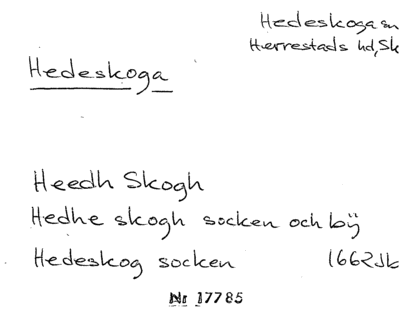 Hedeskoga sn
Herrestads hd, Sk
Hedeskoga
Heedh Skogh
Hedhe skogh socken och bÿ
Hedeskog socken 1662 Jb
Nr 17785